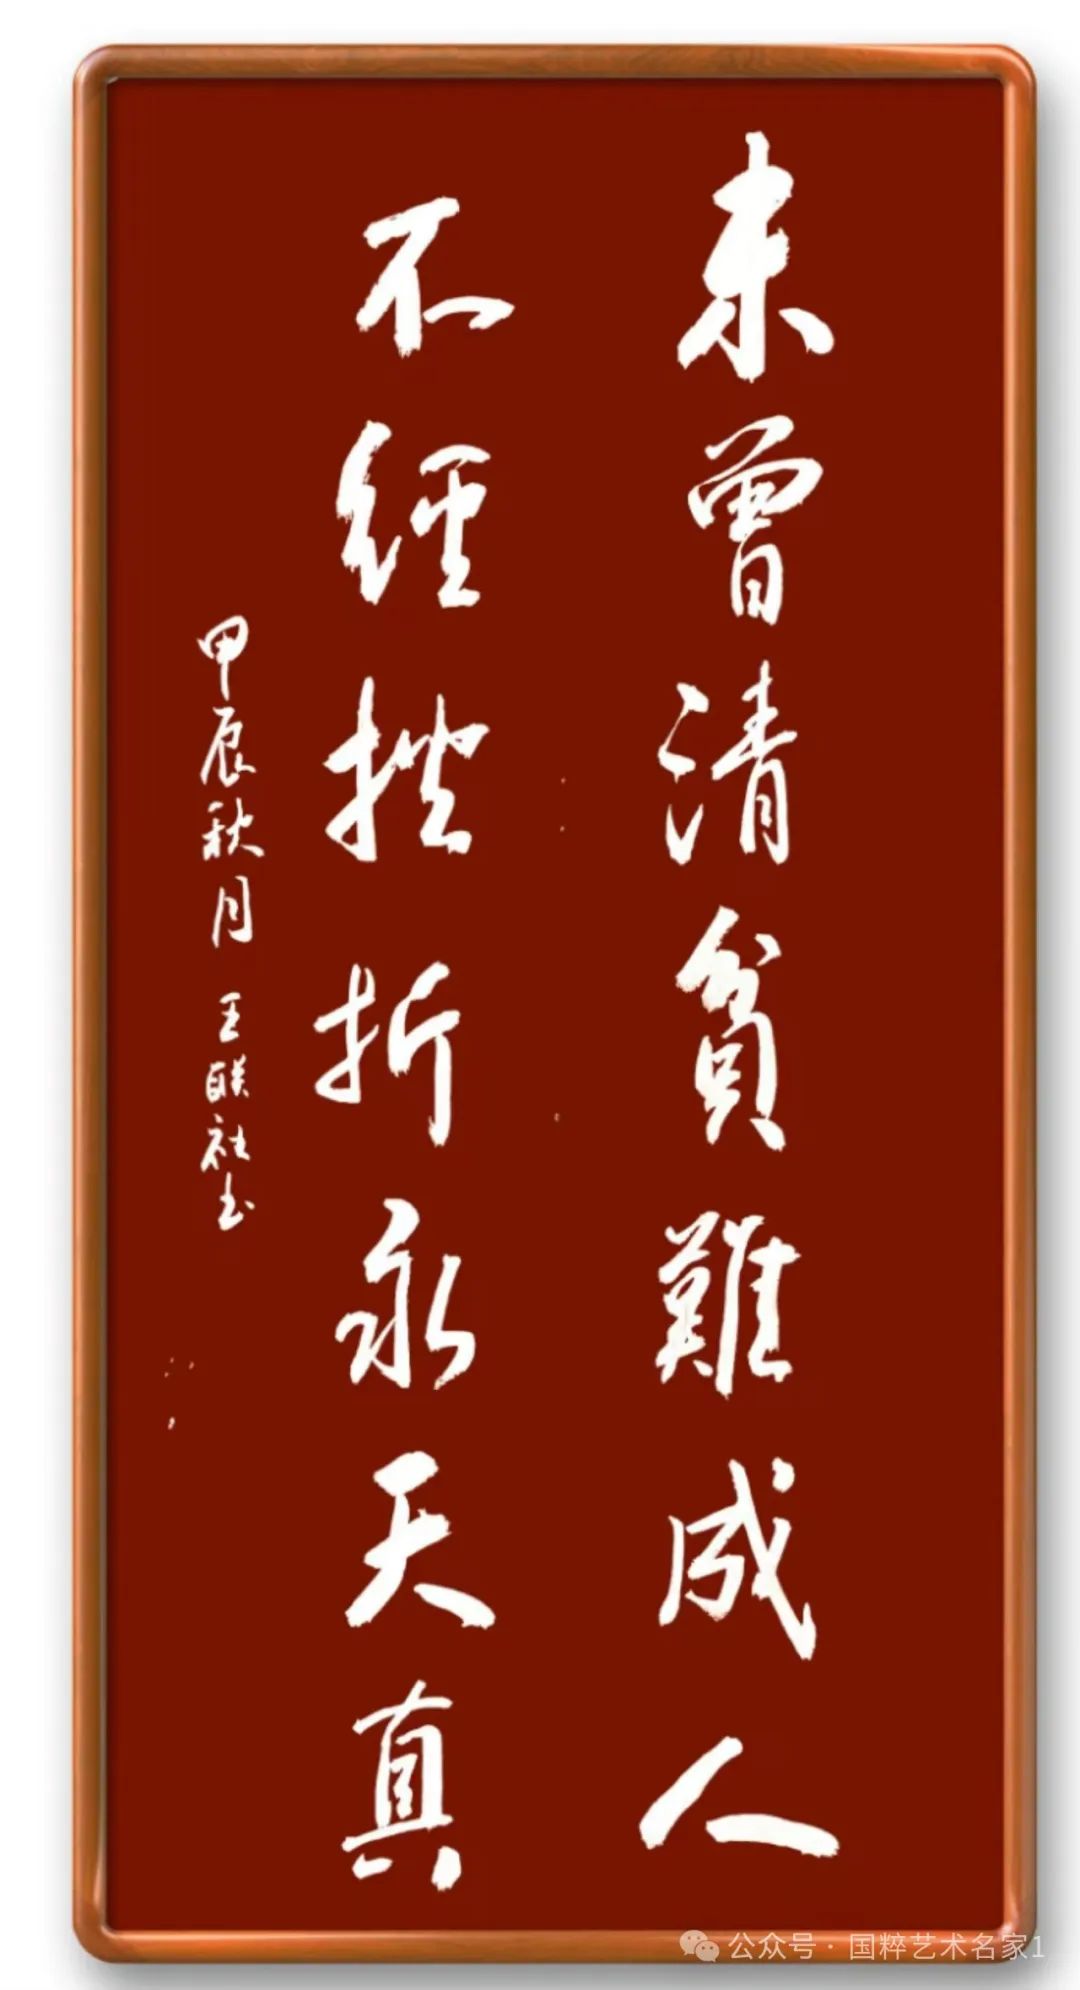 未曾清貧難成人
不經挫折永天真
甲辰秋月 王联社书
公众号 · 国粹艺术名家1